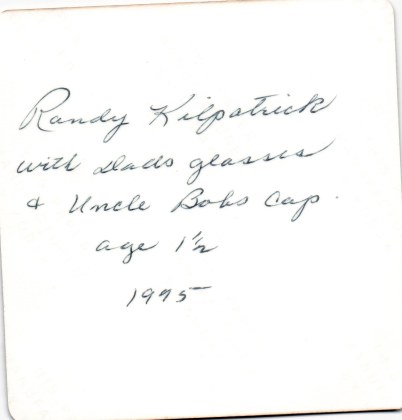 Randy Kilpatrick
with Dads glasses
& Uncle Bobs Cap.
age 1½
1975